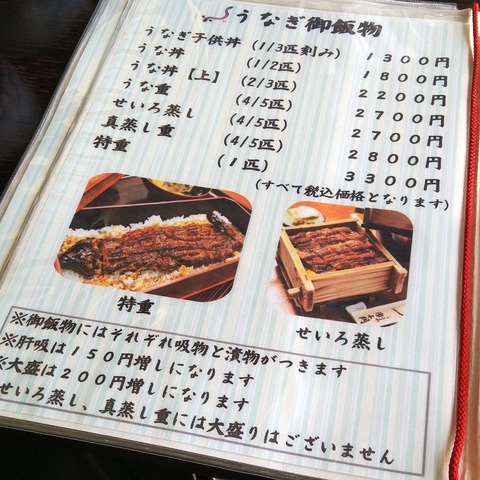 うなぎ御飯物
うなぎ子供丼 (1/3匹刻み) 1300円
うな丼 (1/2匹) 1800円
うな丼【上】 (2/3匹) 2200円
うな重 (4/5匹) 2700円
せいろ蒸し (4/5匹) 2700円
真蒸し重 (4/5匹) 2800円
特重 (1匹) 3300円
(すべて税込価格となります)
特重
せいろ蒸し
※御飯物にはそれぞれ吸物と漬物がつきます
※肝吸は150円増しになります
※大盛は200円増しになります
せいろ蒸し、真蒸し重には大盛りはございません